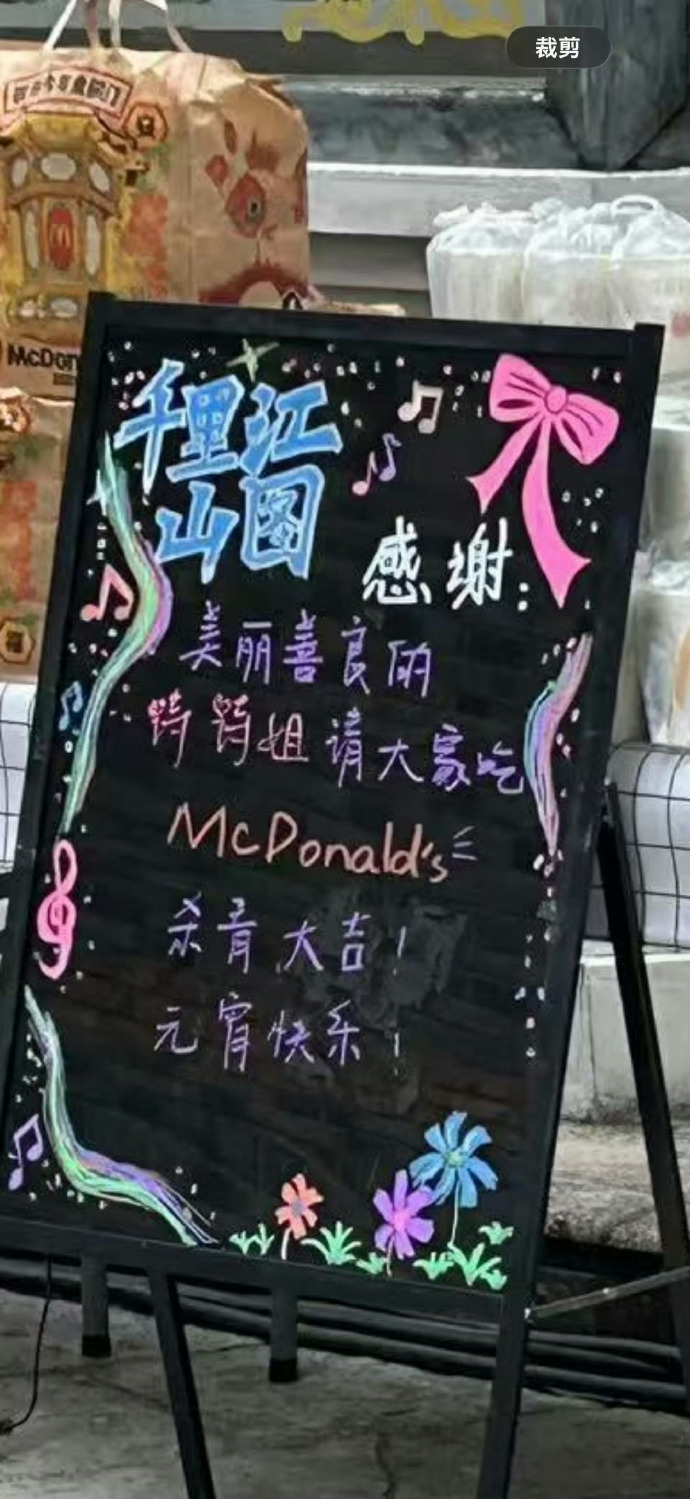 裁剪
McDon
千里江
山图
感谢:
美丽善良的
诗诗姐请大家吃
McDonald's
杀青大吉!
元宵快乐!